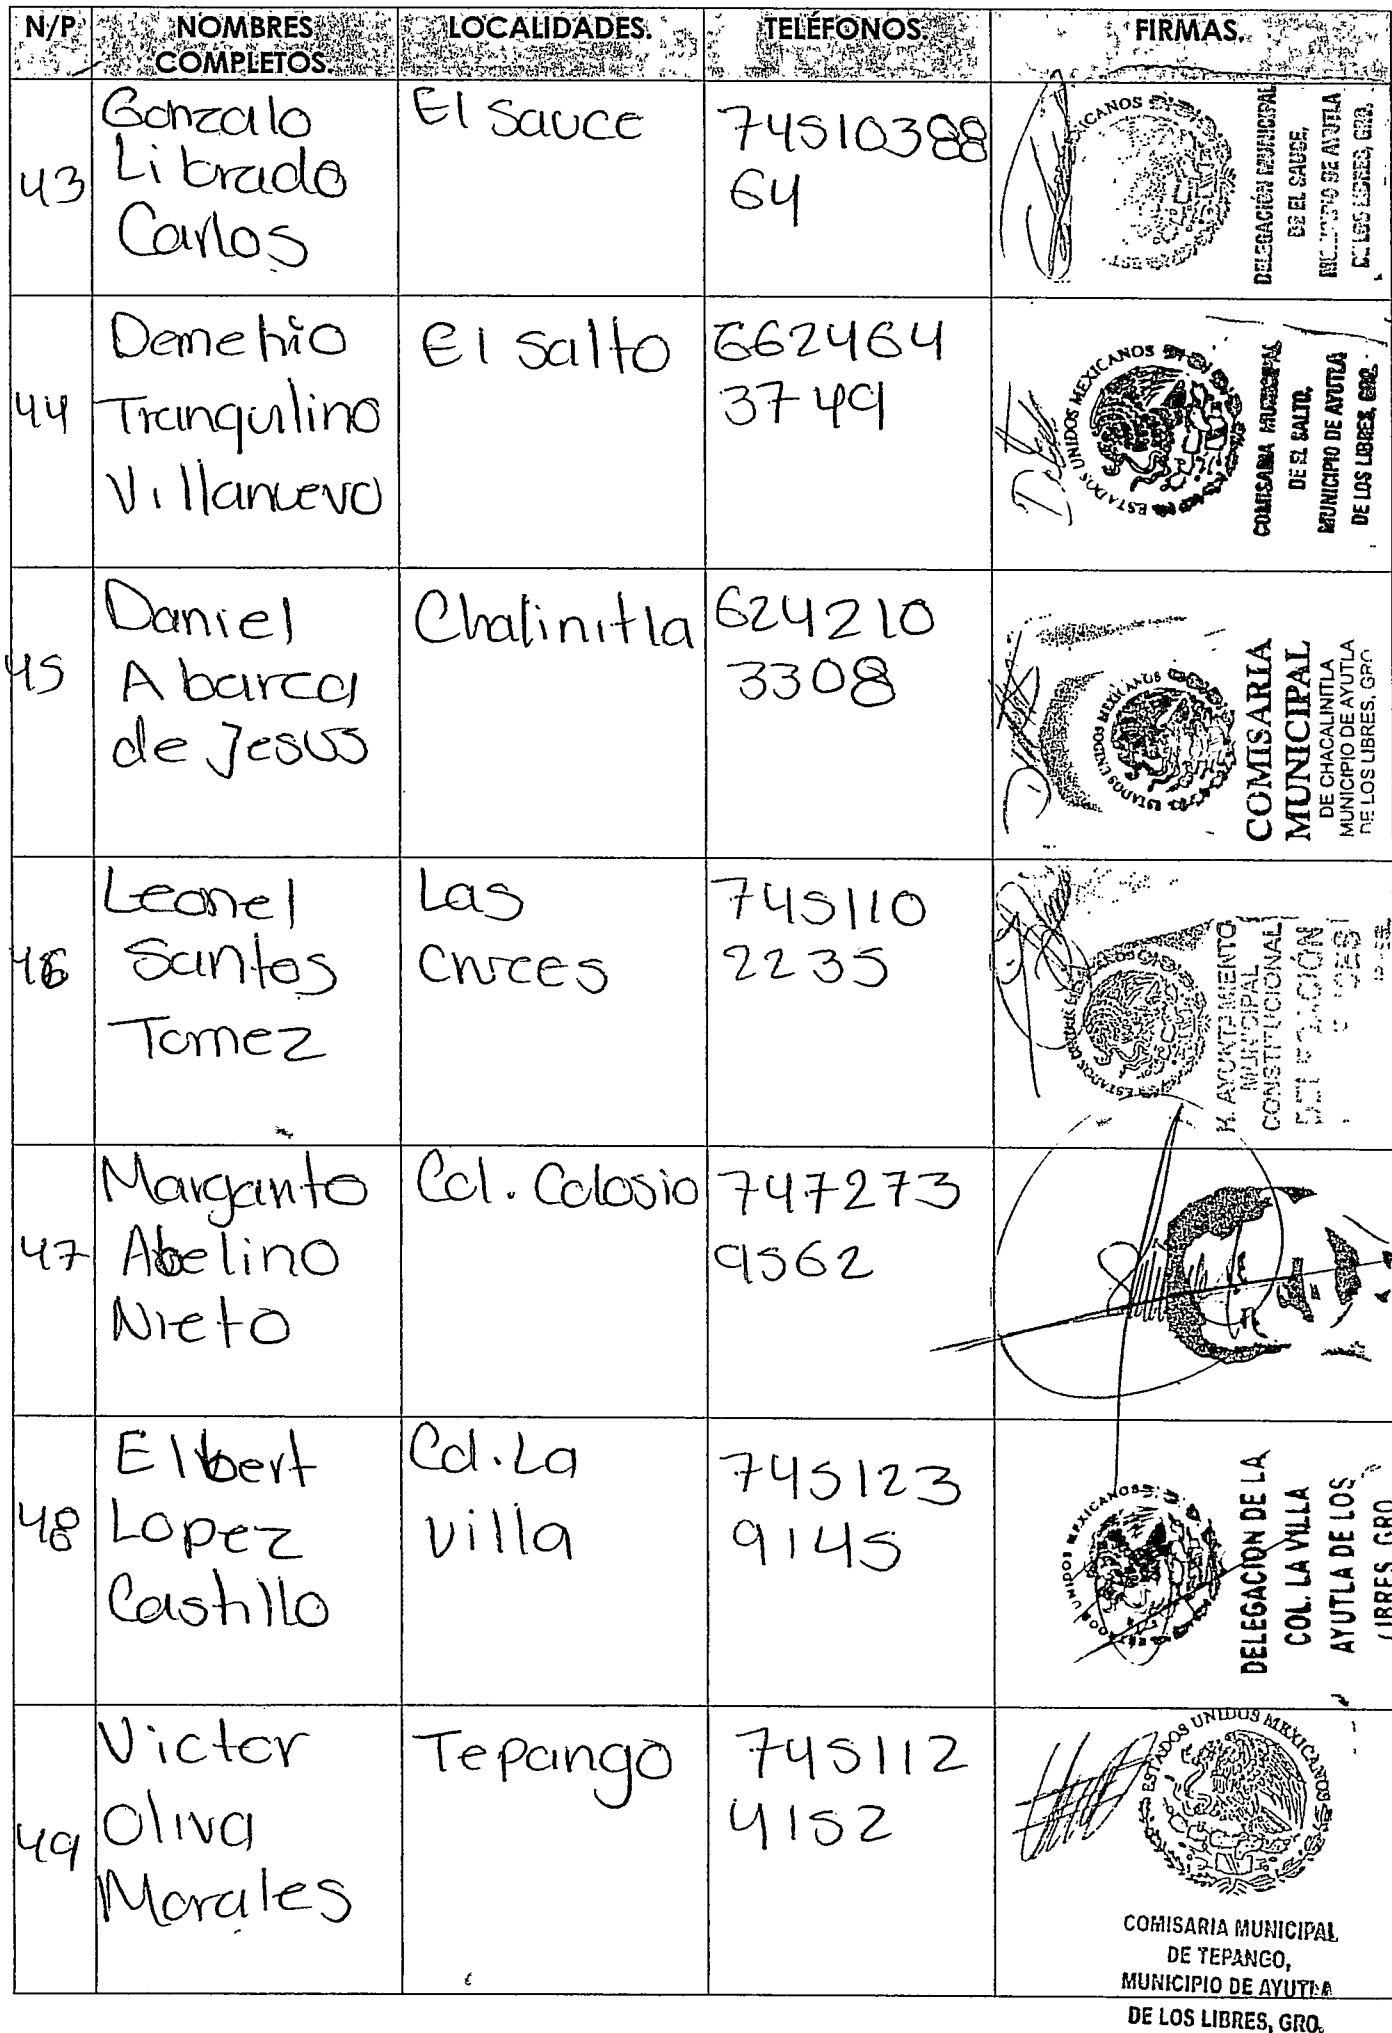 N/P NOMBRES COMPLETOS. LOCALIDADES. TELÉFONOS. FIRMAS.
43
Gonzalo
Librado
Carlos
El Sauce
74510388
64
DELEGACIÓN MUNICIPAL
DE EL SAUCE,
MUNICIPIO DE AYUTLA
DE LOS LIBRES, GRO.
44
Demetrio
Tranquilino
Villanueva
El salto
662464
3749
ESTADOS UNIDOS MEXICANOS
COMISARIA MUNICIPAL
DE EL SALTO,
MUNICIPIO DE AYUTLA
DE LOS LIBRES, GRO.
45
Daniel
Abarca
de Jesus
Chalinitla
624210
3308
ESTADOS UNIDOS MEXICANOS
COMISARIA
MUNICIPAL
DE CHACALINITLA
MUNICIPIO DE AYUTLA
DE LOS LIBRES, GRO
46
Leonel
Santos
Tomez
Las
Cruces
745110
2235
H. AYUNTAMIENTO
MUNICIPAL
CONSTITUCIONAL
47
Margarito
Abelino
Nieto
Col. Colosio
747273
9562
48
Elbert
Lopez
Castillo
Col. La
Villa
745123
9145
ESTADOS UNIDOS MEXICANOS
DELEGACION DE LA
COL. LA VILLA
AYUTLA DE LOS
LIBRES GRO
49
Victor
Oliva
Morales
Tepango
745112
4152
ESTADOS UNIDOS MEXICANOS
COMISARIA MUNICIPAL
DE TEPANGO,
MUNICIPIO DE AYUTLA
DE LOS LIBRES, GRO.